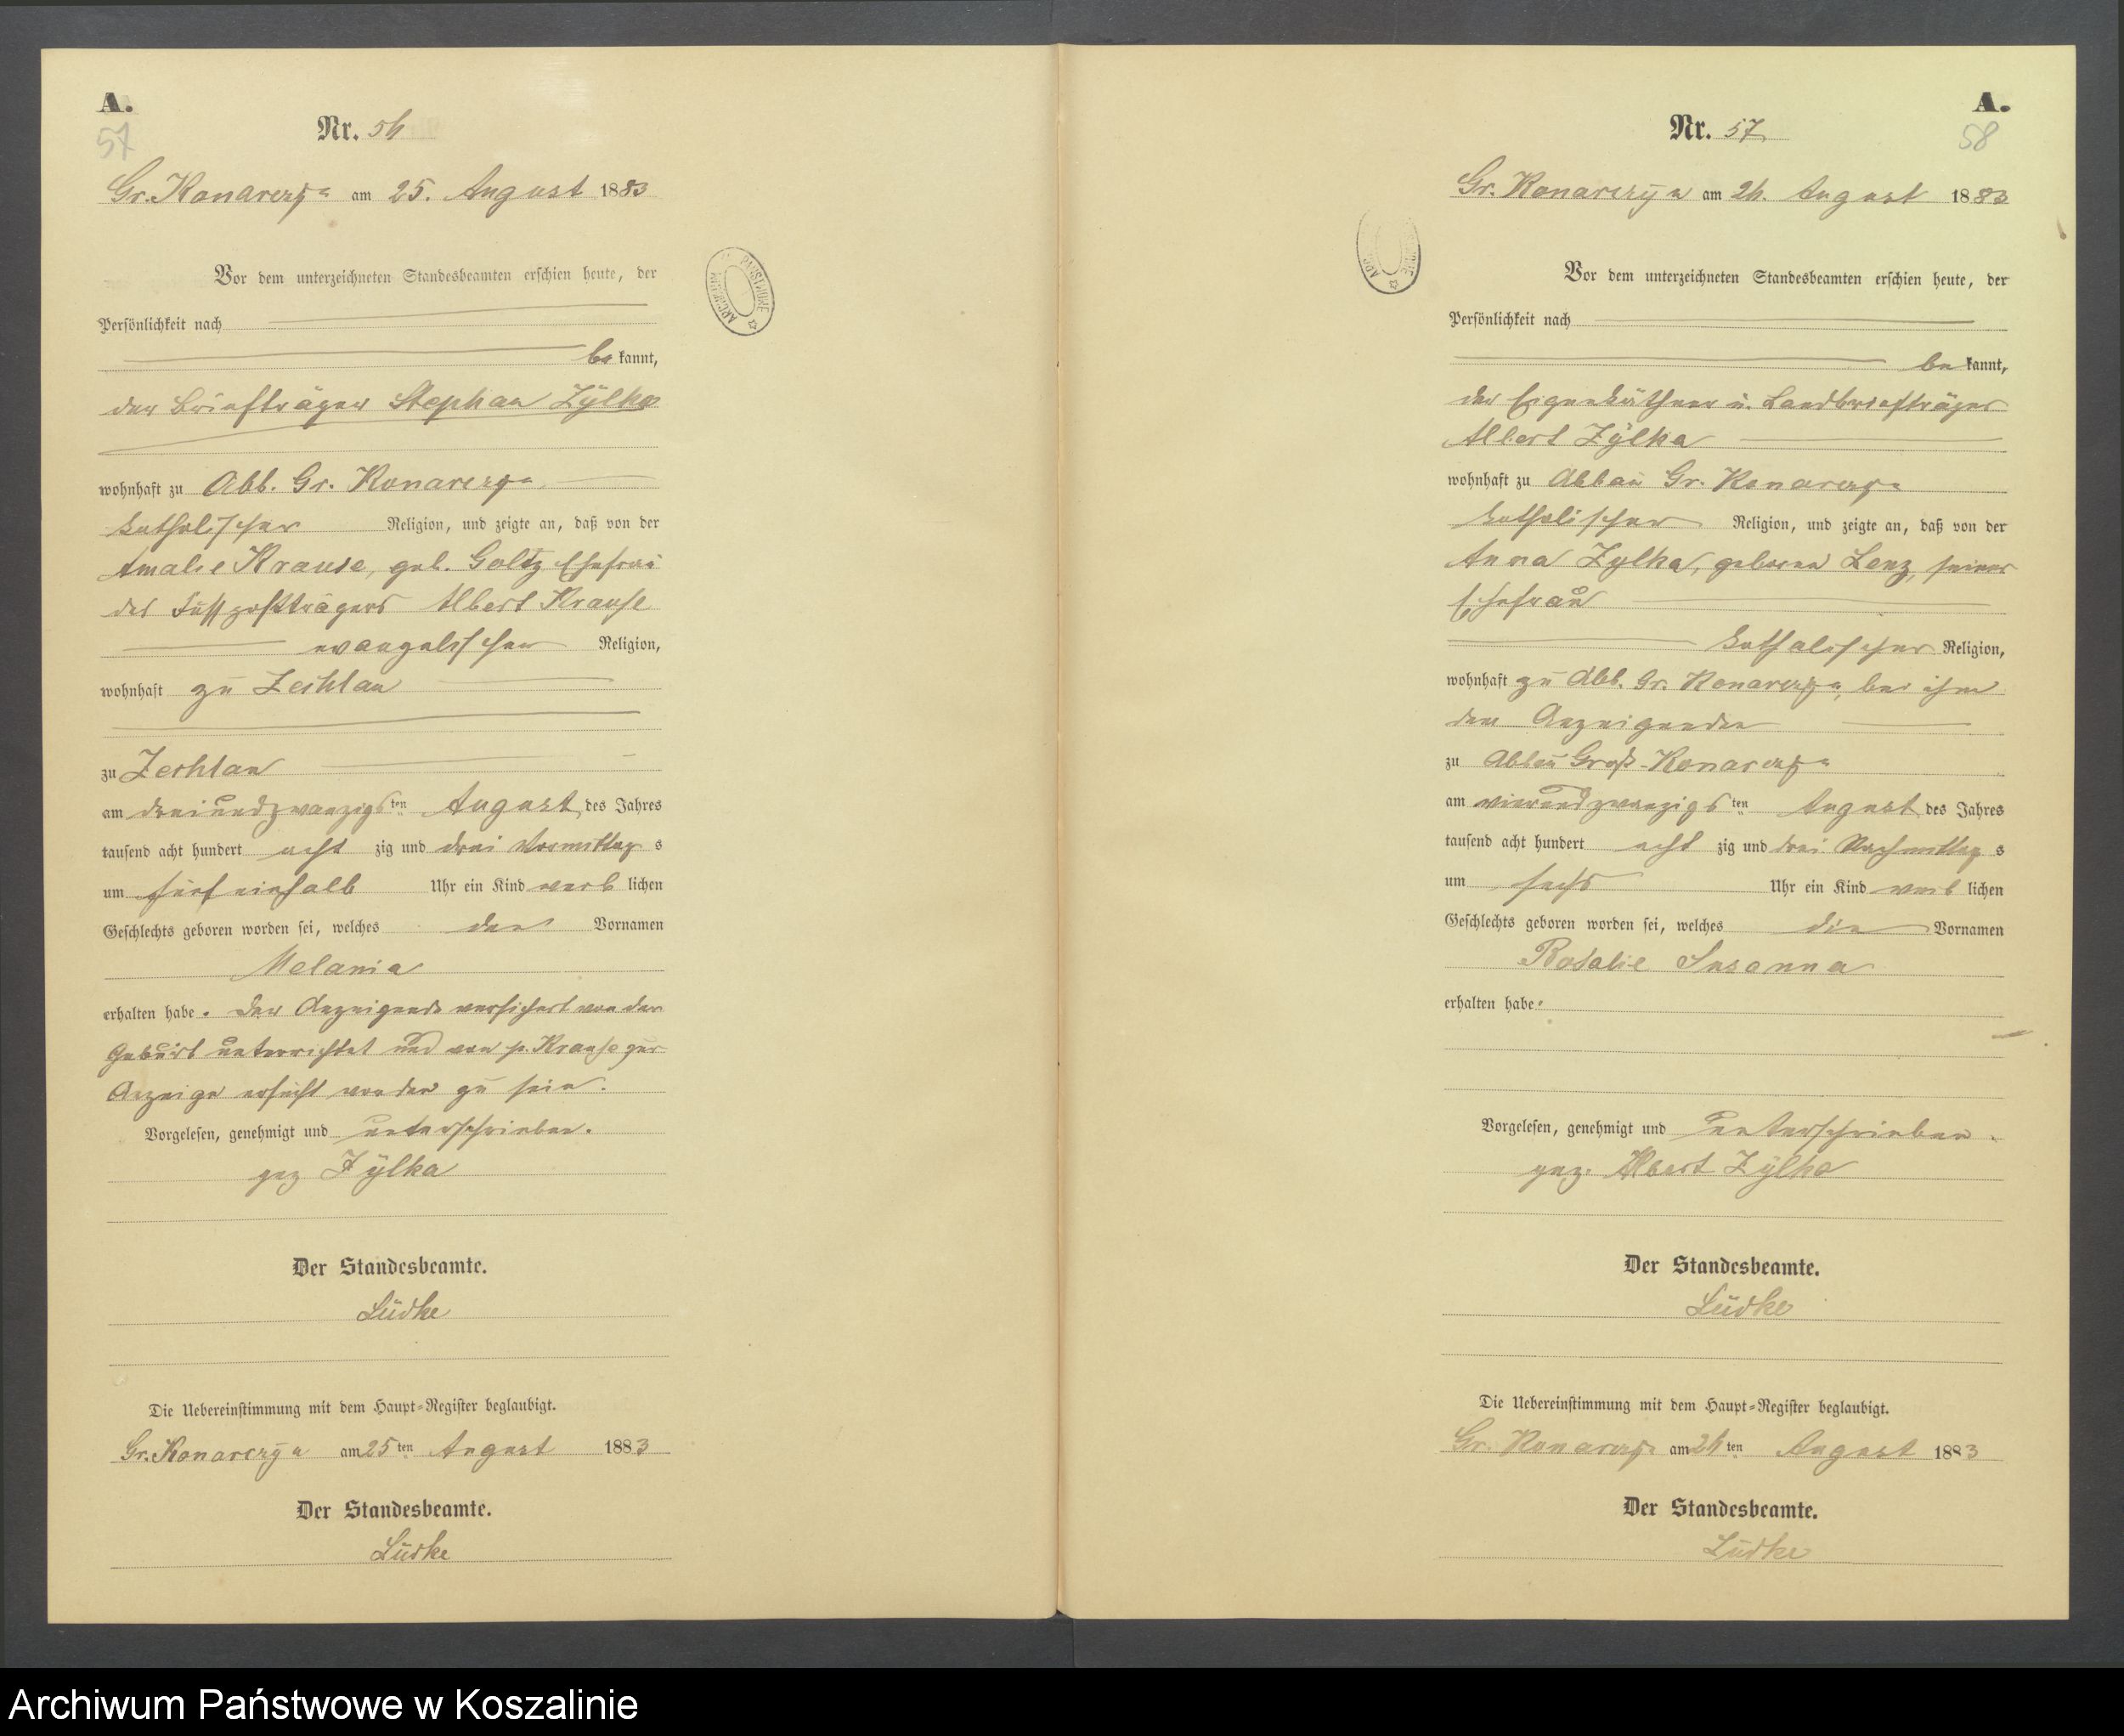 A.
57
Nr. 56
Gr. Konarczyn am 25. August 1883
Vor dem unterzeichneten Standesbeamten erschien heute, der
Persönlichkeit nach
bekannt,
der Briefträger Stephan Zÿlka
wohnhaft zu Abb. Gr. Konarczyn
katholischer Religion, und zeigte an, daß von der
Amalie Krause, geb. Goltz Ehefrau
des Fußpostträgers Albert Krause
evangelischer Religion,
wohnhaft zu Zechlau
zu Zechlau
am dreiundzwanzigsten August des Jahres
tausend acht hundert achtzig und drei Vormittags
um fünf einhalb Uhr ein Kind weiblichen
Geschlechts geboren worden sei, welches den Vornamen
Melania
erhalten habe. Der Anzeigende versichert von der
Geburt unterrichtet und von p. Krause zur
Anzeige ersucht worden zu sein.
Vorgelesen, genehmigt und unterschrieben.
gez Zÿlka
Der Standesbeamte.
Lüdke
Die Uebereinstimmung mit dem Haupt-Register beglaubigt.
Gr. Konarczyn am 25ten August 1883
Der Standesbeamte.
Lüdke
ARCHIWUM PAŃSTWOWE
A.
58
Nr. 57
Gr. Konarczyn am 26. August 1883
Vor dem unterzeichneten Standesbeamten erschien heute, der
Persönlichkeit nach
bekannt,
der Eigenkäthner u. Landbriefträger
Albert Zÿlka
wohnhaft zu Abbau Gr. Konarczyn
katholischer Religion, und zeigte an, daß von der
Anna Zylka, geboren Lenz, seiner
Ehefrau
katholischer Religion,
wohnhaft zu Abb. Gr. Konarczyn, bei ihm
dem Anzeigenden
zu Abbau Groß-Konarczyn
am vierundzwanzigsten August des Jahres
tausend acht hundert achtzig und drei Nachmittags
um sechs Uhr ein Kind weiblichen
Geschlechts geboren worden sei, welches die Vornamen
Rosalie Susanna
erhalten habe.
Vorgelesen, genehmigt und unterschrieben.
gez. Albert Zÿlka
Der Standesbeamte.
Lüdke
Die Uebereinstimmung mit dem Haupt-Register beglaubigt.
Gr. Konarczyn am 26ten August 1883
Der Standesbeamte.
Lüdke
Archiwum Państwowe w Koszalinie